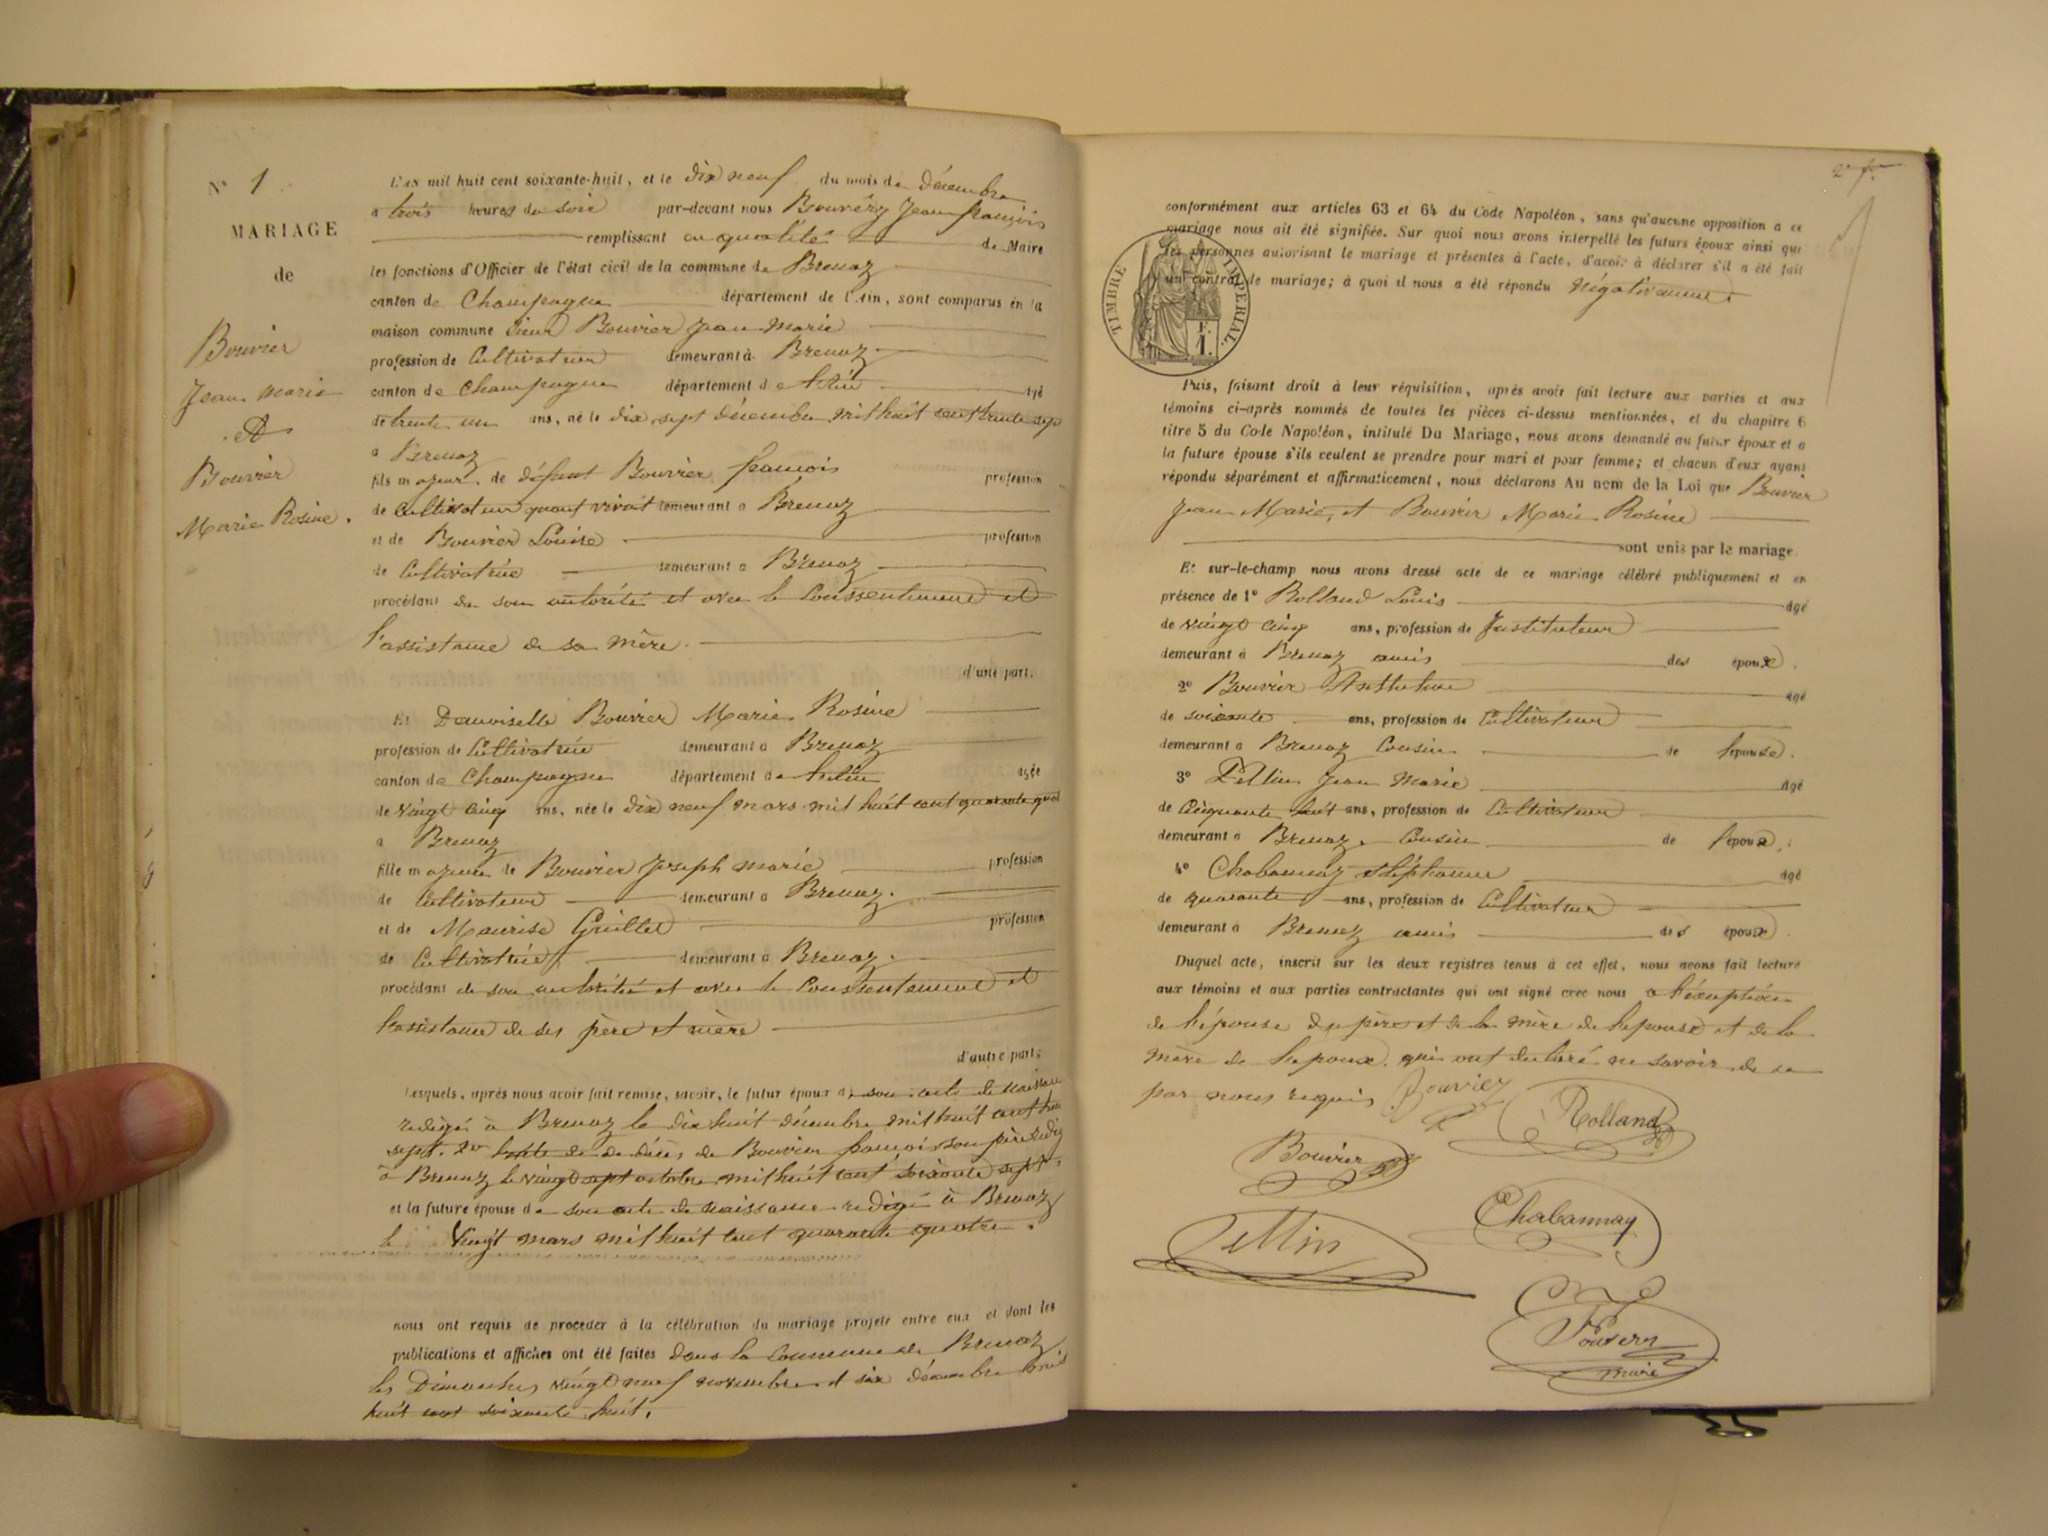 N° 1
MARIAGE
de
Bouvier
Jean Marie
et
Bouvier
Marie Rosine.
L'an mil huit cent soixante-huit, et le dix neuf du mois de décembre
a trois heures du soir par-devant nous Bouvéry Jean françois
remplissant en qualité de Maire
les fonctions d'Officier de l'état civil de la commune de Brenaz
canton de Champagne département de l'Ain, sont comparus en la
maison commune sieur Bouvier Jean marie
profession de Cultivateur demeurant à Brenaz
canton de Champagne département de l'Ain âgé
de trente un ans, né le dix sept décembre mil huit cent trente sept
a Brenaz
fils majeur de défunt Bouvier françois profession
de Cultivateur quant vivait demeurant a Brenaz
et de Bouvier Louise profession
de Cultivatrice demeurant a Brenaz
procédant de son autorité et avec le Conssentement et
l'assistance de sa mère.
d'une part.
Et Demoiselle Bouvier Marie Rosine
profession de Cultivatrice demeurant a Brenaz
canton de Champagne département de l'Ain agée
de vingt cinq ans, née le dix neuf mars mil huit cent quarante quat
a Brenaz
fille majeure de Bouvier Joseph marie profession
de Cultivateur demeurant a Brenaz.
et de Maurise Guillet profession
de Cultivatrice demeurant à Brenaz.
procédant de son autorité et avec le Conssentement et
l'assistance de ses père et mère
d'autre part;
Lesquels, après nous avoir fait remise, savoir, le futur époux de son acte de naissance
redigé à Brenaz le dix huit décembre mil huit cent trente
sept. de décès de Bouvier françois son père redigé
à Brenaz le vingt sept octobre mil huit cent soixante sept
et la future épouse de son acte de naissance redigé à Brenaz
le Vingt mars mil huit cent quarante quatre.
nous ont requis de procéder à la célébration du mariage projeté entre eux et dont les
publications et affiches ont été faites dans la Commune de Brenaz
les Dimanches vingt neuf novembre et six décembre mil
huit cent soixante huit.
conformément aux articles 63 et 64 du Code Napoléon, sans qu'aucune opposition a ce
mariage nous ait été signifiée. Sur quoi nous avons interpellé les futurs époux ainsi que
les personnes autorisant le mariage et présentes à l'acte, d'avoir à déclarer s'il a été fait
un contrat de mariage; à quoi il nous a été répondu négativement
TIMBRE IMPÉRIAL.
F.
1.
Puis, faisant droit à leur réquisition, après avoir fait lecture aux parties et aux
témoins ci-après nommés de toutes les pièces ci-dessus mentionnées, et du chapitre 6
titre 5 du Code Napoléon, intitulé Du Mariage, nous avons demandé au futur époux et a
la future épouse s'ils veulent se prendre pour mari et pour femme; et chacun d'eux ayant
répondu séparément et affirmativement, nous déclarons Au nom de la Loi que Bouvier
Jean Marie, et Bouvier Marie Rosine
sont unis par le mariage.
Et sur-le-champ nous avons dressé acte de ce mariage célébré publiquement et en
présence de 1° Rolland Louis âgé
de vingt cinq ans, profession de Instituteur
demeurant à Brenaz amis des époux.
2° Bouvier Anthelme agé
de soixante ans, profession de Cultivateur
demeurant a Brenaz Cousin de l'epouse.
3° Jean Marie âgé
de Cinquante huit ans, profession de Cultivateur
demeurant a Brenaz. Cousin de l'epoux.
4° Chabannay Stéphanne agé
de quarante ans, profession de Cultivateur
demeurant à Brenaz amis des époux.
Duquel acte, inscrit sur les deux registres tenus à cet effet, nous avons fait lecture
aux témoins et aux parties contractantes qui ont signé avec nous a l'éxeption
de l'épouse du père et de la mère de l'epouse et de la
mère de l'epoux. qui ont declaré ne savoir de ce
par nous requis Bouvier
Rolland
Bouvier
Chabannay
maire